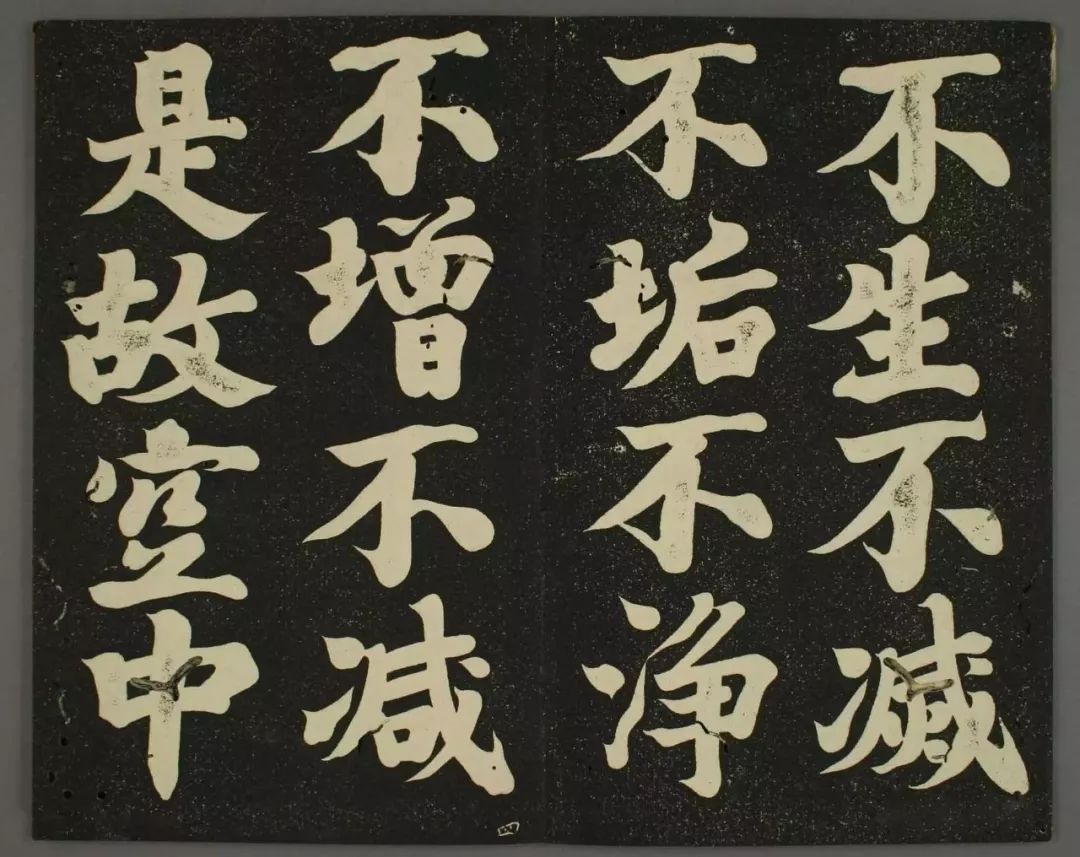 不生不滅
不垢不净
不增不減
是故空中